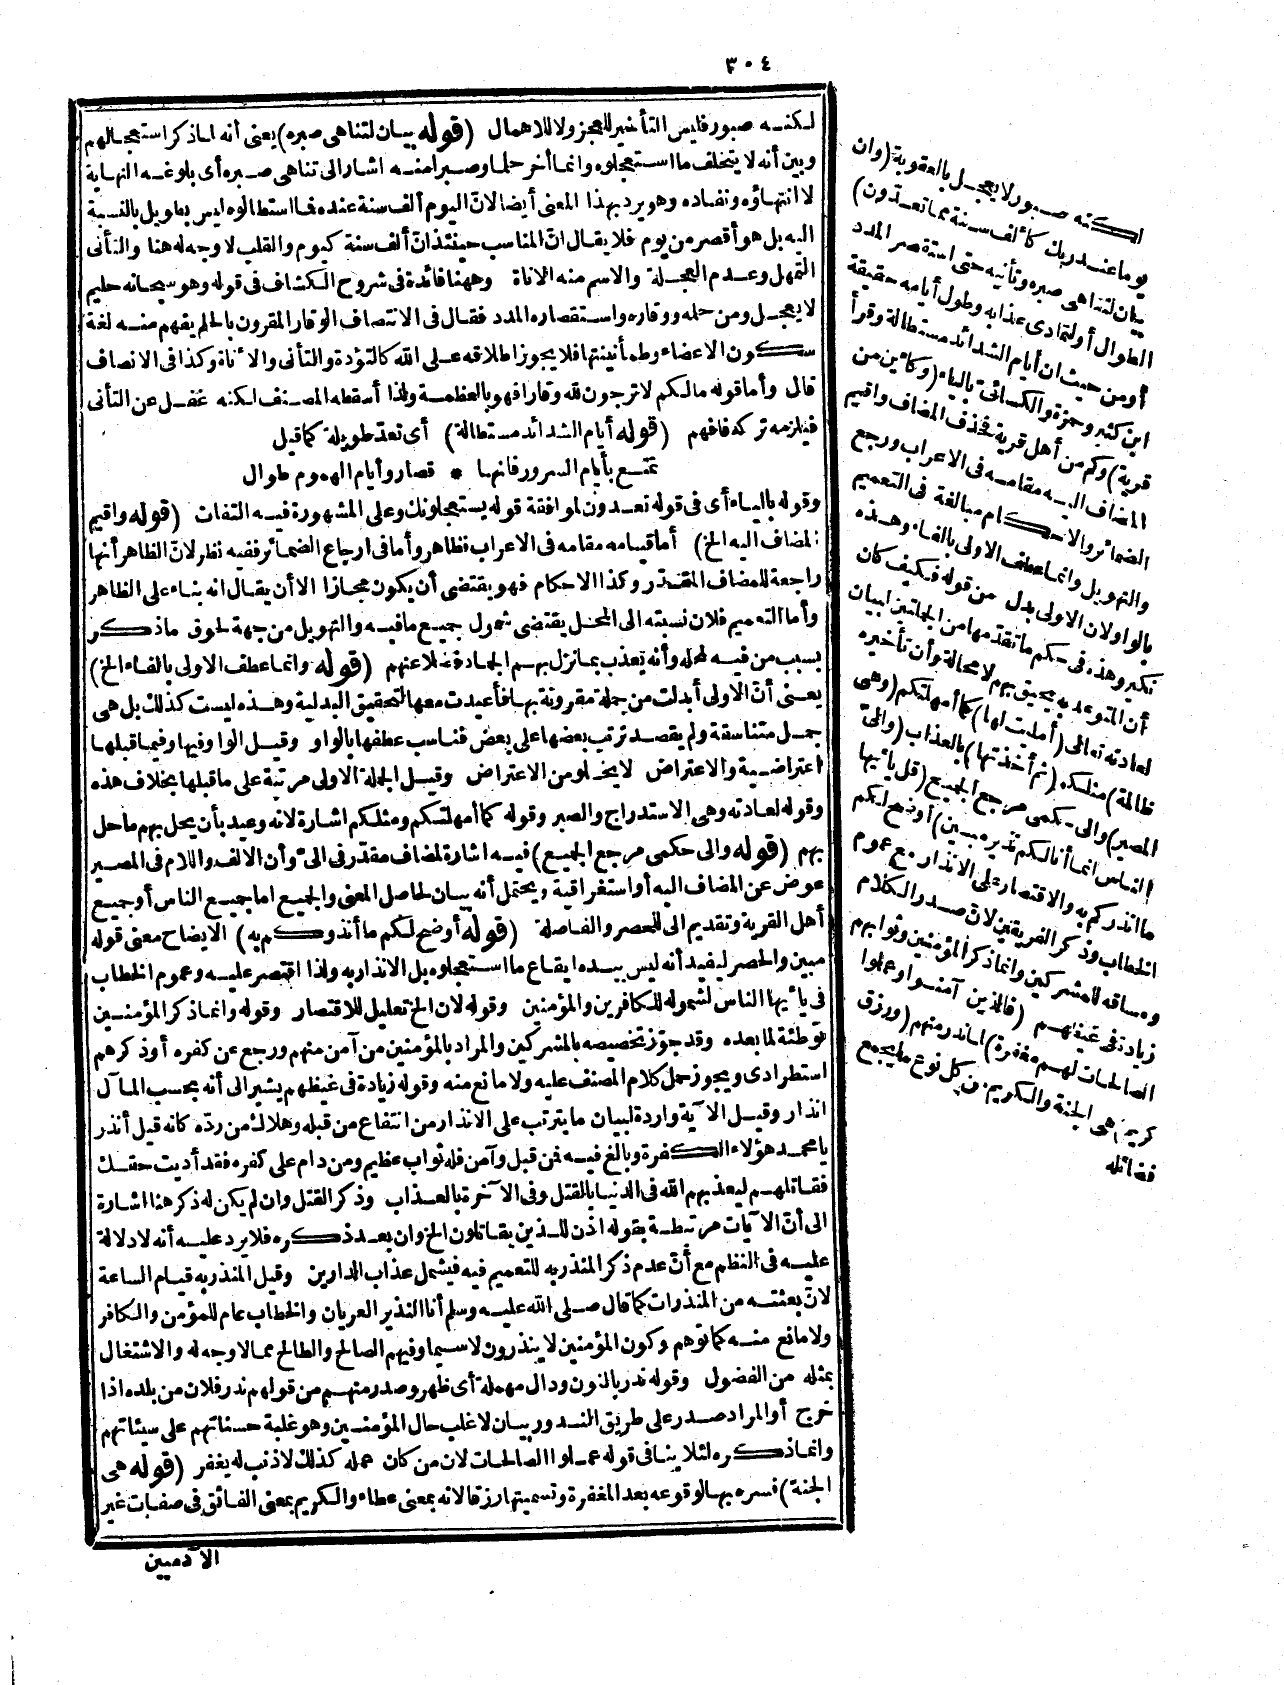 ٣٠٤
لكنه صبور فليس التأخير للعجز ولا للاهمال (قوله بيان لتناهى صبره) يعنى أنه لما ذكر استعجالهم
وبين أنه لا يتخلف ما استعجلوه وانما أخر حلما وصبرا منه اشار الى تناهى صبره أى بلوغه النهاية
لا انتهاؤه ونفاده وهو يرد بهذا المعنى أيضا لان اليوم ألف سنة عنده فما استطالوه ليس بطويل بالنسبة
اليه بل هو أقصر من يوم فلا يقال انّ المناسب حينئذ انّ ألف سنة كيوم والقلب لا وجه له هنا والتأنى
التمهل وعدم العجلة والاسم منه الاناة وههنا فائدة فى شروح الكشاف فى قوله وهو سبحانه حليم
لا يعجل ومن حلمه ووقاره واستقصاره المدد فقال فى الانتصاف الوقار المقرون بالحلم يفهم منه لغة
سكون الاعضاء وطمأنينتها فلا يجوز اطلاقه على الله كالتؤدة والتأنى والاناة وكذا فى الانصاف
قال وأما قوله مالكم لا ترجون لله وقارا فهو بالعظمة ولذا أسقطه المصنف لكنه غفل عن التأنى
فيلزمه تركه فافهم (قوله أيام الشدائد مستطالة) أى تعدّ طويلة كما قيل
تمتع بأيام السرور فانها * قصار وأيام الهموم طوال
وقوله بالياء أى فى قوله تعدون لموافقة قوله يستعجلونك وعلى المشهورة فيه التفات (قوله واقيم
المضاف اليه الخ) أما قيامه مقامه فى الاعراب فظاهر وأما فى ارجاع الضمائر ففيه نظر لانّ الظاهر أنها
راجعة للمضاف المقدّر وكذا الاحكام فهو يقتضى أن يكون مجازا الا أن يقال انه بناء على الظاهر
وأما التعميم فلان نسبته الى المحل يقتضى شمول جميع ما فيه والتهويل من جهة لحوق ما ذكر
بسبب من فيه لمحله وأنه تعذب بما نزل بهم الجمادة فضلا عنهم (قوله وانما عطف الاولى بالفاء الخ)
يعنى أنّ الاولى أبدلت من جملة مقرونة بها فأعيدت معها لتحقيق البدلية وهذه ليست كذلك بل هى
جمل متناسقة ولم يقصد ترتب بعضها على بعض فناسب عطفها بالواو وقيل الواو فيها وفيما قبلها
اعتراضية والاعتراض لا يخلو من الاعتراض وقيل الجملة الاولى مرتبة على ما قبلها بخلاف هذه
وقوله لعادته وهى الاستدراج والصبر وقوله كما أمهلتكم ومثلكم اشارة لانه وعيد بأن يحل بهم ما حل
بهم (قوله والى حكمى مرجع الجميع) فيه اشارة لمضاف مقدّر فى الىّ وأن الالف واللام فى المصير
عوض عن المضاف اليه أو استغراقية ويحتمل أنه بيان لحاصل المعنى والجميع اما جميع الناس أو جميع
أهل القرية وتقديم الى للحصر والفاصلة (قوله أوضح لكم ما أنذركم به) الايضاح معنى قوله
مبين والحصر ليفيد أنه ليس بيده ايقاع ما استعجلوه بل الانذار به ولذا اقتصر عليه وعموم الخطاب
فى يا أيها الناس لشموله للكافرين والمؤمنين وقوله لان الخ تعليل للاقتصار وقوله وانما ذكر المؤمنين
توطئة لما بعده وقد جوّز تخصيصه بالمشركين والمراد بالمؤمنين من آمن منهم ورجع عن كفره أو ذكرهم
استطرادى ويجوز حمل كلام المصنف عليه ولا مانع منه وقوله زيادة فى غيظهم يشير الى أنه بحسب المآل
انذار وقيل الآية واردة لبيان ما يترتب على الانذار من انتفاع من قبله وهلاك من ردّه كانه قيل أنذر
يا محمد هؤلاء الكفرة وبالغ فيه فمن قبل وآمن فله ثواب عظيم ومن دام على كفره فقد أديت حقك
فقاتلهم ليعذبهم الله فى الدنيا بالقتل وفى الآخرة بالعذاب وذكر القتل وان لم يكن له ذكر هنا اشارة
الى أنّ الآيات مرتبطة بقوله اذن للذين يقاتلون الخ وان بعد ذكره فلا يرد عليه أنه لا دلالة
عليه فى النظم مع أنّ عدم ذكر المنذر به للتعميم فيه فيشمل عذاب الدارين وقيل المنذر به قيام الساعة
لانّ بعثته من المنذرات كما قال صلى الله عليه وسلم أنا النذير العريان والخطاب عام للمؤمن والكافر
ولا مانع منه كما توهم وكون المؤمنين لا ينذرون لا سيما وفيهم الصالح والطالح مما لا وجه له والاشتغال
بمثله من الفضول وقوله ندر بالنون ودال مهملة أى ظهر وصدر منهم من قولهم ندر فلان من بلده اذا
خرج أو المراد صدر على طريق الندور بيان لاغلب حال المؤمنين وهو غلبة حسناتهم على سيئاتهم
وانما ذكره لئلا ينافى قوله عملوا الصالحات لان من كان عمله كذلك لا ذنب له يغفر (قوله هى
الجنة) فسره بها لوقوعه بعد المغفرة وتسميتها رزقا لانه بمعنى عطاء والكريم بمعنى الفائق فى صفات غير
الآدميين
لكنه صبور لا يعجل بالعقوبة (وان
يوما عند ربك كألف سنة مما تعدون)
بيان لتناهى صبره وتأنيه حتى استقصر المدد
الطوال أو لتمادى عذابه وطول أيامه حقيقة
أو من حيث ان أيام الشدائد مستطالة وقرأ
ابن كثير وحمزة والكسائى بالياء (وكأين من
قرية) وكم من أهل قرية فحذف المضاف واقيم
المضاف اليه مقامه فى الاعراب ورجع
الضمائر والاحكام مبالغة فى التعميم
والتهويل وانما عطف الاولى بالفاء وهذه
بالواو لان الاولى بدل من قوله فكيف كان
نكير وهذه فى حكم ما تقدّمها من الجملتين لبيان
أن المتوعد به يحيق بهم لا محالة وأن تأخيره
لعادته تعالى (أمليت لها) كما أمهلتكم (وهى
ظالمة) مثلكم (ثم أخذتها) بالعذاب (والىّ
المصير) والى حكمى مرجع الجميع (قل يا أيها
الناس انما أنا لكم نذير مبين) أوضح لكم
ما أنذركم به والاقتصار على الانذار مع عموم
الخطاب وذكر الفريقين لانّ صدر الكلام
ومساقه للمشركين وانما ذكر المؤمنين وثوابهم
زيادة فى غيظهم (فالذين آمنوا وعملوا
الصالحات لهم مغفرة) لما ندر منهم (ورزق
كريم) هى الجنة والكريم من كل نوع ما يجمع
فضائله